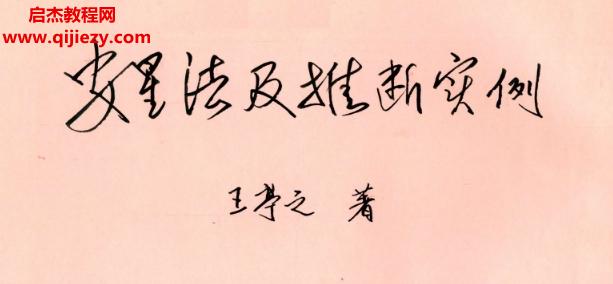 启杰教程网
www.qijiezy.com
安星法及推断实例
王亭之 著